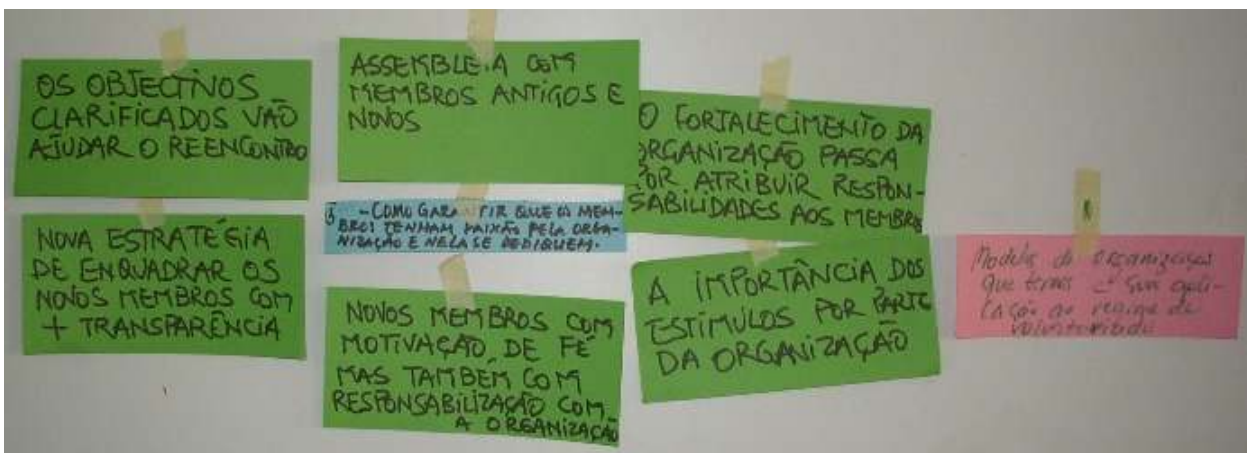 OS OBJECTIVOS
CLARIFICADOS VÃO
AJUDAR O REENCONTRO
NOVA ESTRATÉGIA
DE ENQUADRAR OS
NOVOS MEMBROS COM
+ TRANSPARÊNCIA
ASSEMBLEIA COM
MEMBROS ANTIGOS E
NOVOS
- COMO GARANTIR QUE OS MEM-
BROS TENHAM PAIXÃO PELA ORGA-
NIZAÇÃO E NELA SE DEDIQUEM.
NOVOS MEMBROS COM
MOTIVAÇÃO DE FÉ
MAS TAMBÉM COM
RESPONSABILIZAÇÃO COM
A ORGANIZAÇÃO
O FORTALECIMENTO DA
ORGANIZAÇÃO PASSA
POR ATRIBUIR RESPON-
SABILIDADES AOS MEMBROS
A IMPORTÂNCIA DOS
ESTÍMULOS POR PARTE
DA ORGANIZAÇÃO
Modelo de organização
que temos e sua apli-
cação ao regime de